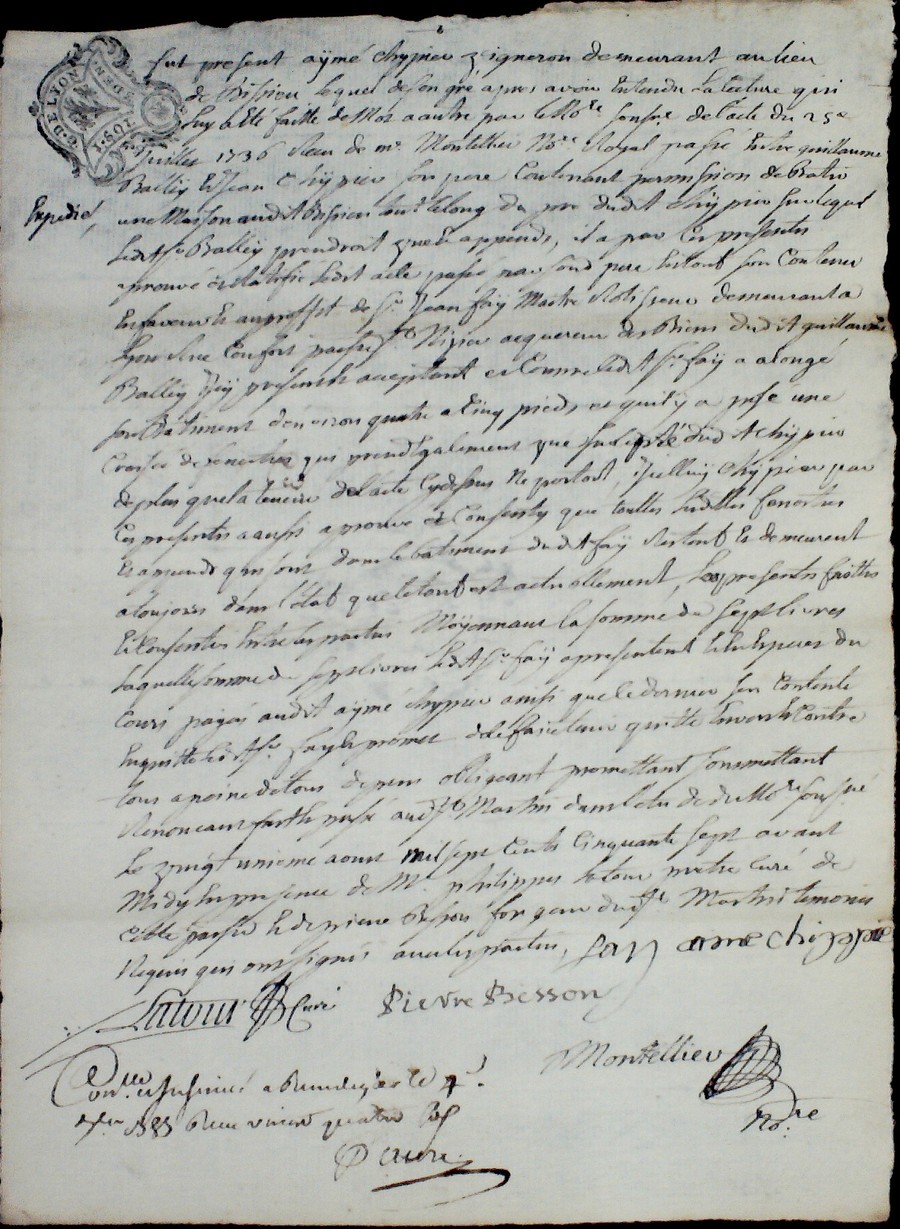 G. DE LYON
DEN
I SOL.
fut present aÿmé chypier vigneron demeurant au lieu
de Bissieu lequel de son gré apres avoir Entendu La Lecture qui
Luy a été faitte de Mot a autre par le No.re soussé de l'acte du 25e
Juillet 1736 Receu de me. Montellier No.re Royal passé Entre guillaume
Balleÿ Et Jean Chÿpier son pere Contenant permission de Batir
Expedié,
une Maison audit Bissieu tout Le long du pré dudit chÿpier sur lequel
Ledit Sr. Balleÿ prendroit vue Et appends, il a par Ces presentes
aprouvé et Ratifié Ledit acte passé par sond pere En tout son Contenu
En faveur Et au proffit de Sr. Jean faÿ Maitre Rotisseur demeurant a
Lyon Rue Confort parroisse St Nizier acquereur des Biens dudit guillaume
Balleÿ Icy present acceptant et Comme Ledit Sr. faÿ a alongé
son Batiment d'environ quatre a Cinq pieds et qu'il y a posé une
Croisée de fenetres qui prend Egalement vue sur le pré dudit chÿpier
de plus que la teneur de l'acte Cy dessus Ne portoit, Icelluy chÿpier par
Ces presentes a aussi aprouvé et Consenty que touttes Lesdittes fenetres
Et apends qui sont dans le batiment dudit faÿ Restent Et demeurent
a toujours dans l'état que le tout est actuellement, Les presentes faittes
Et Consenties Entre les parties Moÿennant la somme de sept livres
Laquelle somme de sept livres Ledit Sr. faÿ a presentement Et En Especes du
Cours payés audit aÿmé chypier ainsi que le dernier s'en Contente
En quitte Ledit Sr. faÿ Et promet de le faire tenir quitte Envers Et Contre
tous a peine de tous depens obligeant promettant soumettant
Renonceant fait Et passé audit St Martin dans l'etude dudit No.re soussé
Le vingt unieme aoust mil sept Cents Cinquante Sept avant
Midy En presence de Me. philippes Latour pretre Curé de
Cette parroisse Et de pierre Besson forgeur dudit St Martin temoins
Requis qui ont signés avec les parties,
faÿ ame chippié
Latour Curé
Pierre Besson
Montellier
No.re
Con.llé et Insinué a le 4.
1757 Receu vingt quatre sols